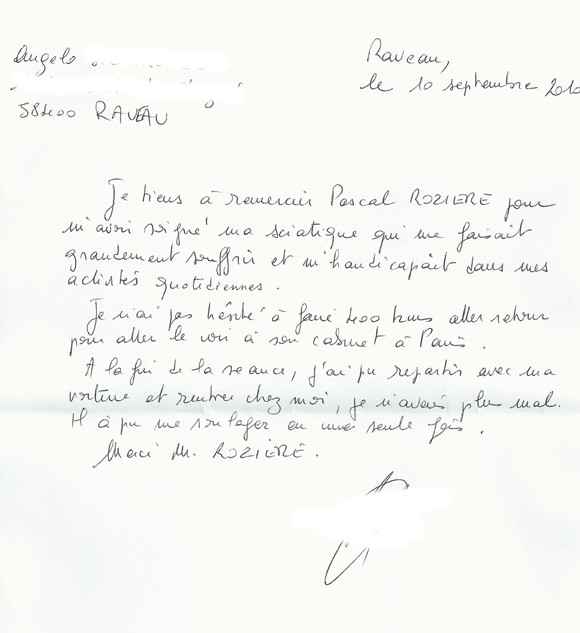 Angelo
Raveau,
le 10 septembre 2010
58400 RAVEAU
Je tiens à remercier Pascal ROZIERE pour
m'avoir soigné ma sciatique qui me faisait
grandement souffrir et m'handicapait dans mes
activités quotidiennes.
Je n'ai pas hésité à faire 400 kms aller retour
pour aller le voir à son cabinet à Paris.
A la fin de la seance, j'ai pu repartir avec ma
voiture et rentrer chez moi, je n'avais plus mal.
Il à pu me soulager en une seule fois.
Merci M. ROZIÈRE.